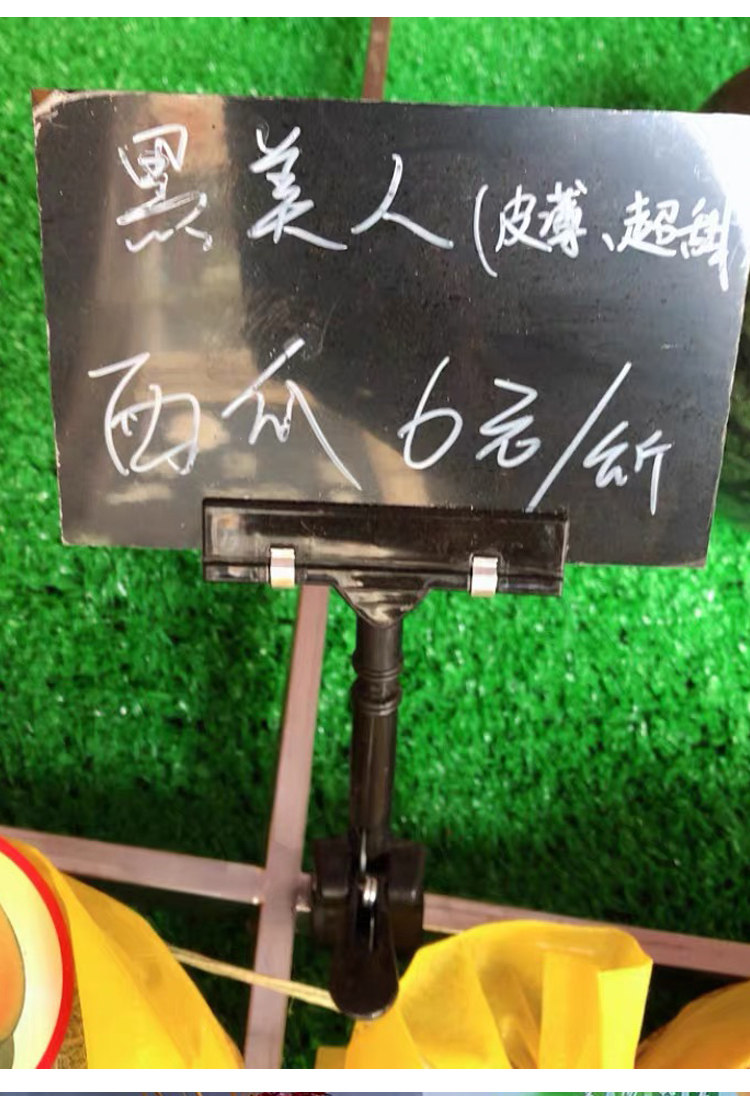 黑美人(皮薄、超甜)
西瓜 6元/斤